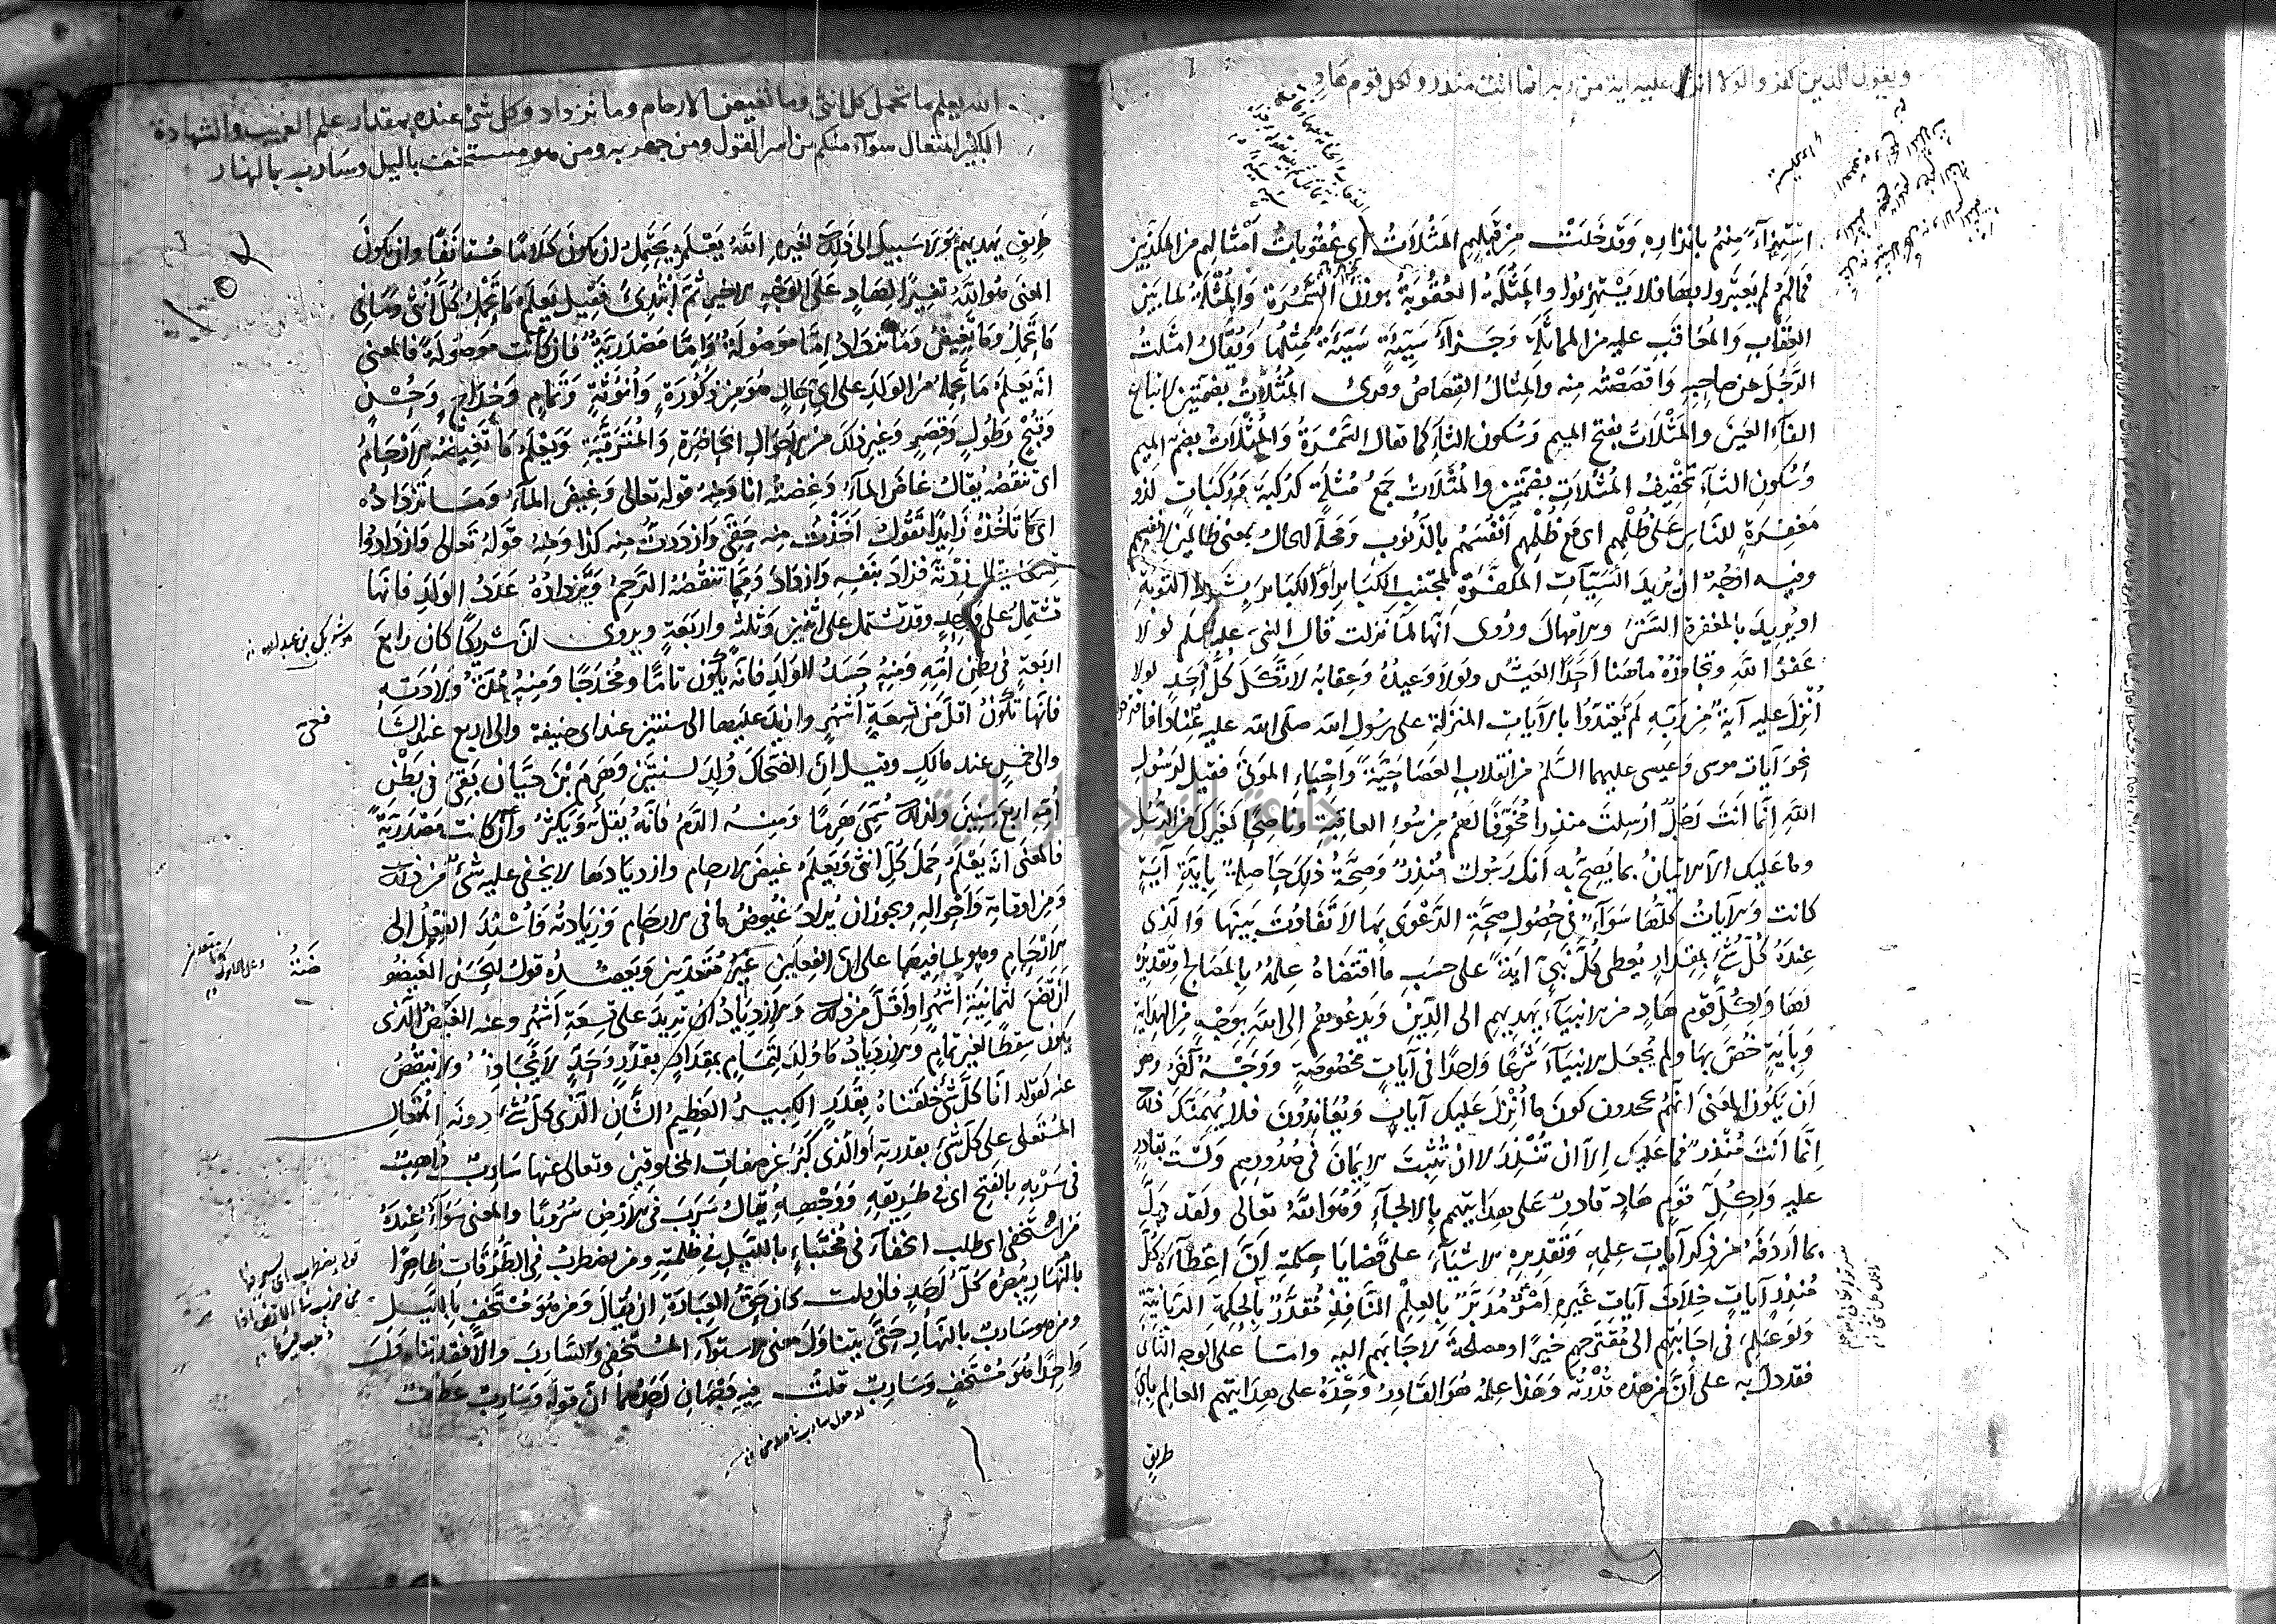 ويقول الذين كفروا لولا انزل عليه اية من ربه انما انت منذر ولكل قوم هاد
استهزاءً منهم بانذاره وَقَد خَلَتْ من قَبلِهِم المَثُلاتُ اي عُقُوباتُ أمثالهم من المكذبين
فما لهم لم يعتبروا بها فلا يستهزئوا والمَثُلَة العُقُوبَةُ بوزن السَّمُرَة والمُثْلَة لما بين
العِقَابِ والمُعَاقَبِ عليه من المماثلة وَجَزآءُ سَيِّئَةٍ سَيِّئَةٌ مِثْلُها ويُقَالُ امثلتُ
الرَّجُلَ من صاحِبِه وَاقصَصْتُه منه والمِثَالُ القِصَاصُ وقرئ المُثُلاتُ بضمتين لاتباع
الفآءِ العَينَ والمَثْلَاتُ بفتح الميم وَسُكون الثآءِ كما يقال السَّمْرَةُ والمُثْلَاتُ بضم الميم
وَسُكونِ الثآءِ تَخْفِيفُ المُثُلاتِ بضمتين والمُثُلَاتُ جَمعُ مُثْلَة كرُكْبَة ورُكَبَات لذو
مَغفِرَةٍ للنَّاسِ عَلى ظُلْمِهِم اي مَع ظُلْمِهِم اَنْفُسَهُم بِالذُّنُوبِ وَمَحلّه الحالُ بمعنى ظالمين لانفسهم
وفيه اوجُهٌ ان يُريدَ السَّيِّآتِ المكفَّرَةَ لمجتنِبِ الكَبَايرِ أوِ الكبَايرَ بِشَرطِ التوبَةِ
او يُرِيدَ بالمغفرةِ السَّترَ والامهال ورُوى أنَّها لمّا نَزلت قال النبي علم لولا
عَفْوُ اللهِ وتجاوُزُهُ ما هَنَأَ أحَدًا العَيشُ ولولا وَعِيدُهُ وَعِقابُه لاتَّكَلَ كلُّ أحَدٍ لولا
أُنْزِلَ عليه آيَةٌ من ربّهِ لم يَعْتَدُّوا بالآياتِ المنزَلَةِ على رسُولِ الله صلى الله عليه عِنادًا فاقترحوا
نحو آيات موسى وعيسى عليهما السّلم من انقلابِ العَصَا حَيَّةً وَإحْيَاءِ الموتى فقيل لرسُولِ
الله إنّما أنت رَجُلٌ اُرسِلتَ منذِرا مُخَوِّفًا لهُم من سُوءِ العاقِبَةِ وناصِحًا كغيرِك من الرسُلِ
وما عَليك الا الاتيانُ بما يَصِحُّ به أنّك رَسُولٌ مُنْذِرٌ وَصِحَّةُ ذلِك حَاصِلةٌ بأيَّةِ آيَةٍ
كانت والآياتُ كُلُّها سَوَآءٌ في حُصُولِ صِحَّةِ الدَّعْوَى بها لا تَفَاوُتَ بَينَها والذي
عِندَهُ كُلُّ شَيْءٍ بمِقدَارٍ يُعطِي كُلَّ نَبِيٍّ آيةً على حَسَبِ ما اقتضَاهُ عِلمُهُ بالمصَالحِ وتقديرُهُ
لها وَلِكُلِّ قَومٍ هَادٍ من الانبيآءِ يَهديهم الى الدِّينِ ويَدعُوهُم إلى اللهِ بوَجْهٍ من الهدايةِ
وَبِآيةٍ خُصَّ بها ولم يُجعَل الانبيآءُ شَرْعًا واحدًا في آياتٍ مَخصُوصَةٍ ووَجْهٌ آخَر وهو
أن يكُونَ المعنى أنّهُم يجحدون كونَ ما أُنْزِلَ عَلَيك آياتٍ ويُعَانِدُونَ فلا يُهِمَنَّكَ ذلِك
إنّما أنتَ مُنْذِرٌ فما عَلَيك إلّا أن تُنْذِرَ لا ان تُثْبِتَ الايمانَ في صُدُورِهِم ولَسْتَ بقادرٍ
عليه ولِكُلِّ قَومٍ هادٍ قادرٍ على هِدَايتِهم بالالجآءِ وهُوَ اللهُ تعالى ولَقد دَلَّ
بما أردَفَهُ من ذكرِ آياتِ عِلمِهِ وتَقديرِهِ الاشيآءَ على قَضَايَا حِكمَتِه أنّ اعطآءَهُ كلَّ
مُنذِرٍ آياتٍ خِلَافَ آياتِ غَيرِهِ أمْرٌ مُدَبَّرٌ بِالعِلْمِ النَّافِذِ مُقَدَّرٌ بالحِكمَةِ الرَّبَّانِيَّةِ
ولَو عَلِمَ في إجابَتِهم الى مُقتَرَحِهِم خَيرًا ومصلحةً لأجابَهم اليه وامّا على الوجهِ الثاني
فقد دلَّ به على أنّ من هذه قُدْرَتُه وهَذا عِلمُه هُوَ القَادِرُ وَحْدَهُ على هِدايتِهم العالِمُ بأيِّ
طريق
الله يعلم ما تحمل كل انثى وما تغيض الارحام وما تزداد وكل شئ عنده بمقدار علم الغيب والشهادة
الكبير المتعال سوآء منكم من اسر القول ومن جهر به ومن هو مستخف باليل وسارب بالنهار
طريقٍ يَهديهم وَلا سَبِيلَ إلى ذلِك لغيره اللهُ يَعْلَمُ يَحتَمِلُ ان يكون كلامًا مُستأنَفًا وان يكُونَ
المعنى هُوَ اللهُ تفسِيرًا لهَادٍ على الوَجْهِ الاخيرِ ثُمّ ابْتُدِئَ فقِيل يَعلَمُ ما تَحْمِلُ كُلُّ أُنثَى وَمَا فِي
مَا تَحمِلُ وما تَغِيضُ وما تزدَادُ إمّا موصُولَةٌ وَإمّا مَصْدَرِيّةٌ فان كانت موصُولَةً فالمعنى
انّه يَعلَمُ مَا تَحمِلُهُ من الوَلَدِ على ايّ حالٍ هُوَ من ذُكُورَةٍ وأُنُوثَةٍ وَتَمَامٍ وَخِدَاجٍ وَحُسْنٍ
وقُبْحٍ وطُولٍ وقِصَرٍ وغيرِ ذلك من الاحوالِ الحاضِرَةِ والمُتَرَقَّبَةِ ويَعْلَمُ ما تَغِيضُه الارحَامُ
اى تنقُصُه يُقالُ غاضَ المآءُ وَغِضتُه انا ومنه قوله تعالى وَغِيضَ المآءُ وَمَا تَزْدَادُه
اى ما تأخُذُهُ زايدًا تقُولُ أخَذْتُ منه حَقّي وازدَدتُ منه كذا ومنهُ قولُهُ تعالى وازدادُوا
تسعًا ويقال زِدْتُه فزادَ بنَفسِهِ وازدَادَ وممّا تنقُصُهُ الرَّحِمُ وتَزدادُهُ عَدَدُ الولَدِ فانّها
تَشتمِلُ على واحِدٍ وقد تشتملُ على اثنين وثلثةٍ واربعَةٍ ويروى انّ شريكًا كان رابعَ
اربعةٍ في بطنِ أُمِّهِ ومنهُ جَسَدُ الوَلَدِ فانّه يكون تامًّا ومُخْدَجًا ومنه مُدّةُ ولادَتِه
فانّها تكُونُ اقلّ من تسِعَةِ أشهُرٍ وازيدَ عليها الى سنتين عند ابي حنيفة والى اربع عند الشا
فعي
والى خَمسٍ عند مالكٍ وقيل إنّ الضَّحاكَ وُلِدَ لسنتين وهَرِمَ بْنَ حَيّانٍ بَقِيَ في بَطنِ
أُمّه اربعَ سنينَ ولذلك سُمِّيَ هَرِمًا ومنه الدّمُ فانّهُ يَقِلُّ وَيكثُرُ وان كانت مصْدَريّةً
فالمعنى انّه يَعْلَمُ حَملَ كلِّ انثى ويَعْلَمُ غَيضَ الارحام وازديادَها لا يخفى عليه شئٌ من ذلك
ومن اوقاته واَحْوالِهِ ويجوز ان يُرادَ غُيوضُ ما في الارحَامِ وَزِيادَتُه فأُسْنِدَ الفعلُ الى
الارحَامِ وهو لما فيها على انّ الفِعلَين غيرُ مُتَعدّيين وَيعضُدُه قولُ الحَسَن الغَيضُوضَةُ
أن تَضَعَ لثمانيَةِ أشهُرٍ او أقلَّ من ذلك والازديادُ ان تزيدَ على تسِعَةِ أشهُرٍ وعنه الغَيضُ الّذي
يكُونُ سِقطًا لغيرِ تمامٍ والازديادُ ما وُلِدَ لتمَامٍ بمقدارٍ بقَدَرٍ واحِدٍ لا يُجَاوِزُهُ ولا ينقُصُ
عنه كقوله انّا كلَّ شئٍ خلقناهُ بقَدَرٍ الكبيرُ العَظيمُ الشَّأنِ الّذي كلُّ شئٍ دونَه المُتَعالِ
المُستعلى على كلِّ شئٍ بقدرتِهِ أو الّذي كَبُرَ عن صفاتِ المخلوقين وتعالى عنها سَارِبٌ ذاهِبٌ
في سَرْبِهِ بالفتحِ اى في طريقِهِ ووَجْهِه يُقالُ سَرَبَ في الارضِ سُرُوبًا والمعنى سَوَآءٌ عِندَهُ
مَن استَخفى اى طلب الخَفآءَ في مُخْتَبَاءٍ بالليلِ في ظُلمتِهِ ومن يضطربُ في الطُرُقاتِ ظاهِرًا
بالنّهارِ يُبصِرُهُ كلُّ أحَدٍ فان قلت كان حَقُّ العِبَارَةِ ان يُقالَ ومن هُوَ مُستَخفٍ بِاللّيلِ
ومن هو سَارِبٌ بالنّهارِ حتّى يتناوَلَ معنى الاستوآءِ المُستَخفي والسَّاربَ والّا فقد تناوَلَ
وَاحِدًا هُوَ مُستَخفٍ وَسَارِبٌ قلتُ فيه وَجْهَانِ أحَدُهُما انّ قولَهُ وَسَارِبٌ عَطفٌ